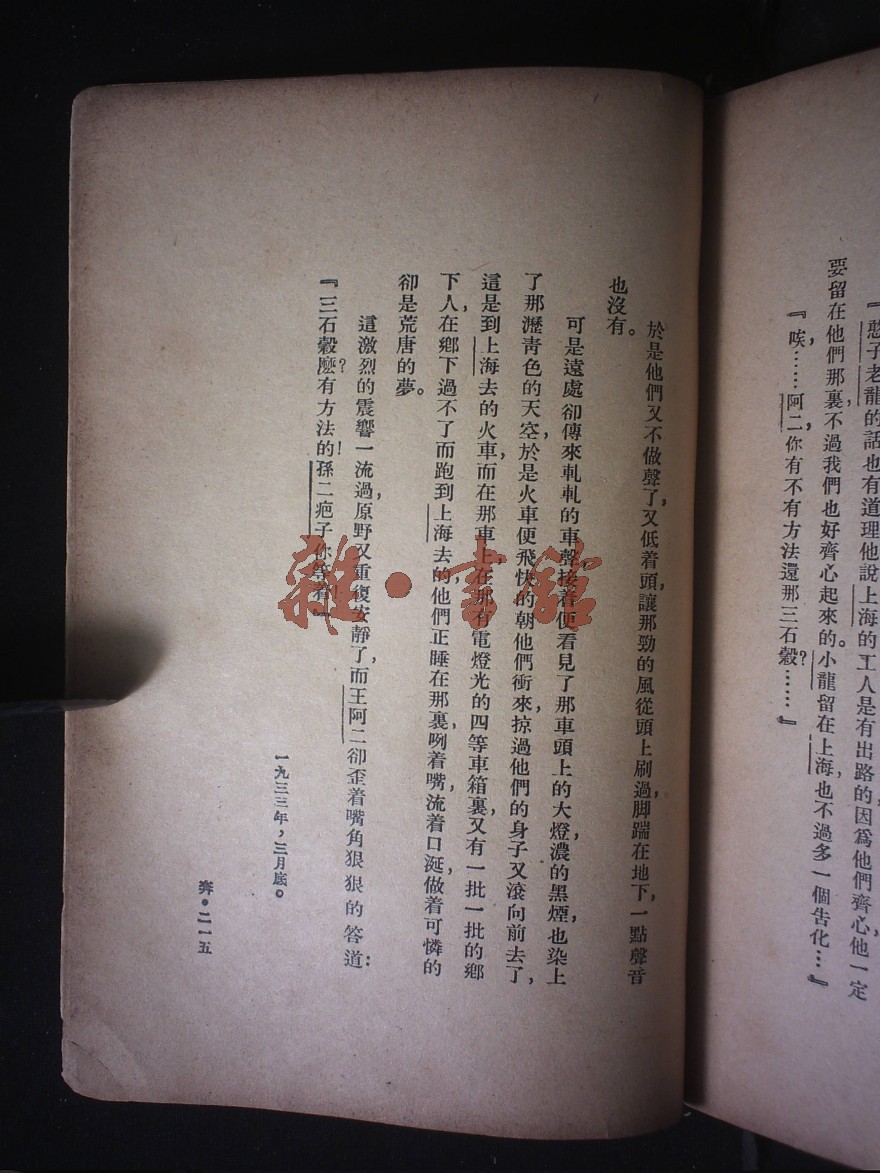 『憨子老龍的話也有道理,他說上海的工人是有出路的,因爲他們齊心,他一定
要留在他們那裏,不過我們也好齊心起來的。小龍留在上海,也不過多一個告化…』
『唉……阿二,你有不有方法還那三石穀?……』
於是他們又不做聲了,又低着頭,讓那勁的風從頭上刷過,脚踹在地下,一點聲音
也沒有。
可是遠處卻傳來軋軋的車聲,接着便看見了那車頭上的大燈,濃的黑煙,也染上
了那瀝靑色的天空,於是火車便飛快的朝他們衝來,掠過他們的身子又滾向前去了,
這是到上海去的火車,而在那車上,在那有電燈光的四等車箱裏,又有一批一批的鄉
下人,在鄉下過不了而跑到上海去的,他們正睡在那裏,咧着嘴,流着口涎,做着可憐的
卻是荒唐的夢。
這激烈的震響一流過,原野又重復安靜了,而王阿二卻歪着嘴角狠狠的答道:
『三石穀麽?有方法的!孫二疤子,你等着!』
一九三三年,三月底。
奔・二一五
雜・書館